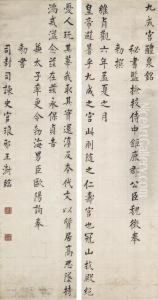 九成宮醴泉銘
秘書監檢校侍中鉅鹿郡公臣魏徵奉
勅撰
維貞觀六年孟夏之月
皇帝避暑乎九成之宮此則隨之仁壽宮也冠山抗殿絕
憂人玩其華我取其實還淳反本代文以質居高思墜持
滿戒溢念茲在茲永保貞吉
兼太子率更令勃海男臣歐陽詢奉
司封司諫史官琅邪王澍臨